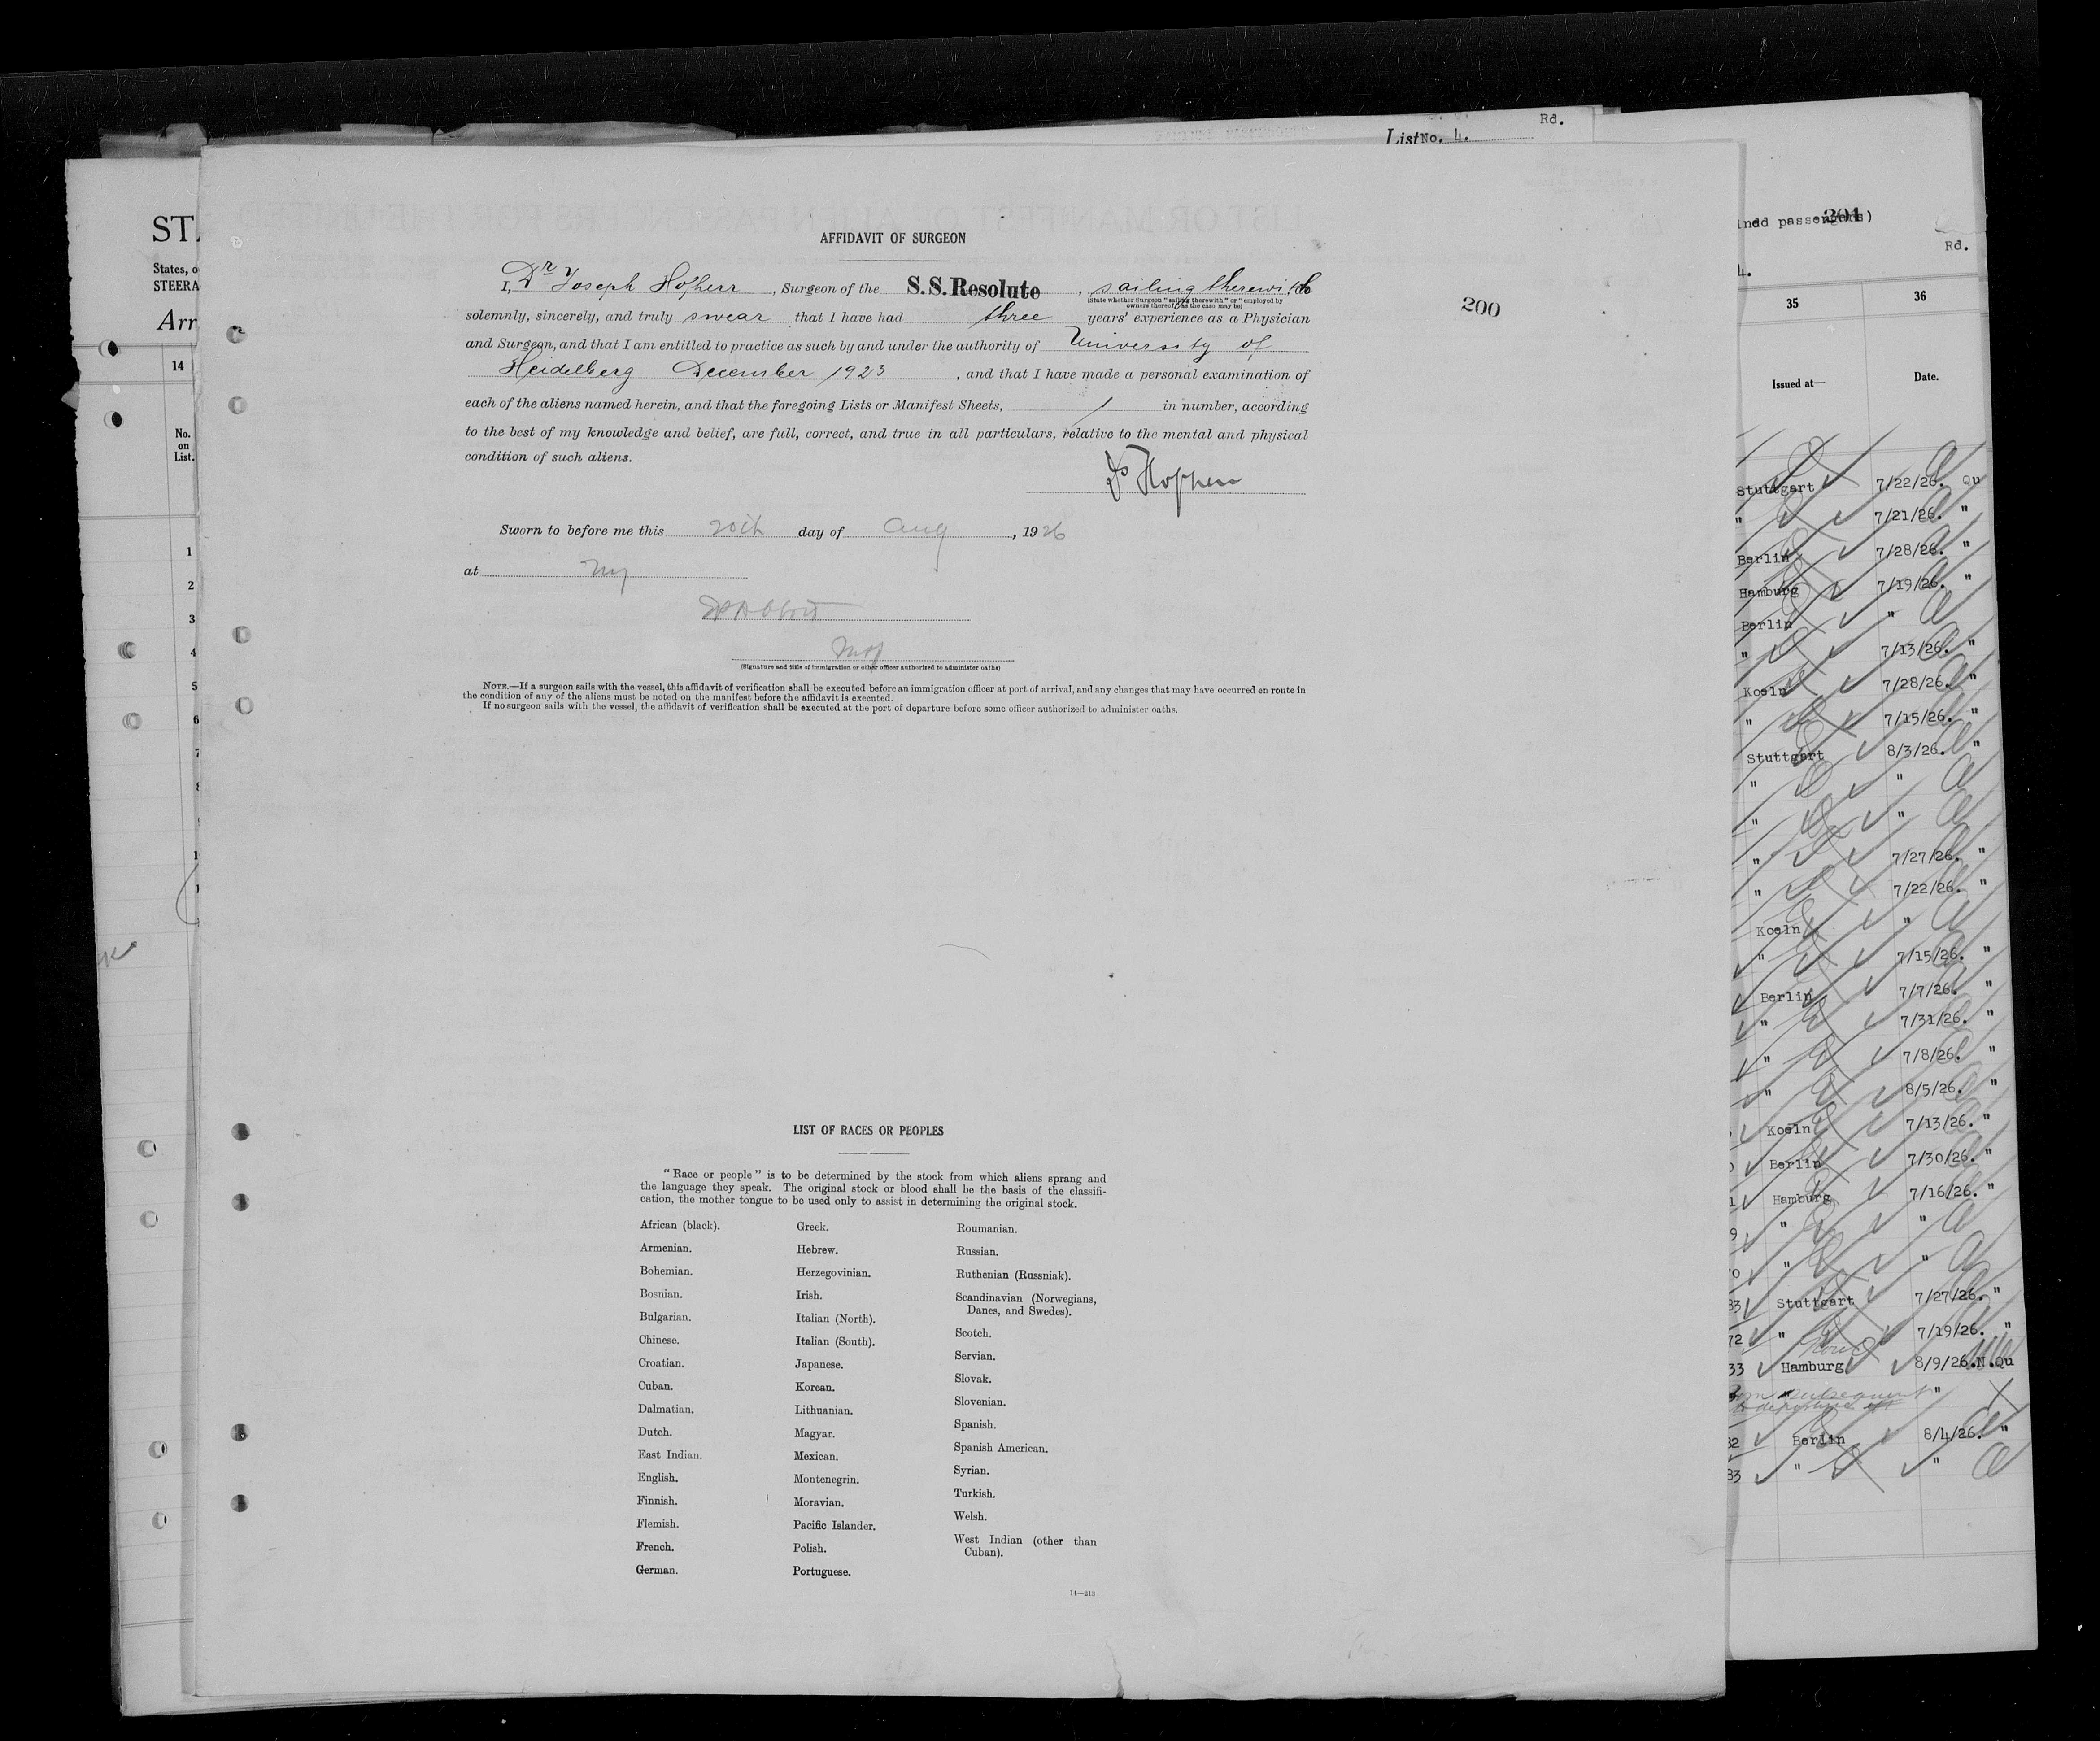 List No. 4.
Rd.
AFFIDAVIT OF SURGEON
I, Dr Joseph Hofherr, Surgeon of the S.S. Resolute, sailing therewith do
(State whether Surgeon "sailing therewith" or "employed by
owners thereof," as the case may be)
solemnly, sincerely, and truly swear that I have had three years' experience as a Physician
and Surgeon, and that I am entitled to practice as such by and under the authority of University of
Heidelberg December 1923, and that I have made a personal examination of
each of the aliens named herein, and that the foregoing Lists or Manifest Sheets, 1 in number, according
to the best of my knowledge and belief, are full, correct, and true in all particulars, relative to the mental and physical
condition of such aliens.
Sworn to before me this 20th day of Aug, 1926
at NY
(Signature and title of immigration or other officer authorized to administer oaths)
NOTE.—If a surgeon sails with the vessel, this affidavit of verification shall be executed before an immigration officer at port of arrival, and any changes that may have occurred en route in
the condition of any of the aliens must be noted on the manifest before the affidavit is executed.
If no surgeon sails with the vessel, the affidavit of verification shall be executed at the port of departure before some officer authorized to administer oaths.
200
LIST OF RACES OR PEOPLES
"Race or people" is to be determined by the stock from which aliens sprang and
the language they speak. The original stock or blood shall be the basis of the classifi-
cation, the mother tongue to be used only to assist in determining the original stock.
African (black).
Armenian.
Bohemian.
Bosnian.
Bulgarian.
Chinese.
Croatian.
Cuban.
Dalmatian.
Dutch.
East Indian.
English.
Finnish.
Flemish.
French.
German.
Greek.
Hebrew.
Herzegovinian.
Irish.
Italian (North).
Italian (South).
Japanese.
Korean.
Lithuanian.
Magyar.
Mexican.
Montenegrin.
Moravian.
Pacific Islander.
Polish.
Portuguese.
Roumanian.
Russian.
Ruthenian (Russniak).
Scandinavian (Norwegians,
Danes, and Swedes).
Scotch.
Servian.
Slovak.
Slovenian.
Spanish.
Spanish American.
Syrian.
Turkish.
Welsh.
West Indian (other than
Cuban).
14—213
STA
States, o
STEERA
Arr
14
No.
on
List.
1
2
3
4
5
6
7
8
201
Rd.
4.
35 36
Issued at— Date.
Stuttgart 7/22/26. Qu
" 7/21/26. "
Berlin 7/28/26. "
Hamburg 7/19/26. "
Berlin "
" 7/13/26. "
Koeln 7/28/26. "
" 7/15/26. "
Stuttgart 8/3/26. "
" "
" "
" 7/27/26. "
" 7/22/26. "
Koeln "
" 7/15/26. "
Berlin 7/7/26. "
" 7/31/26. "
" 7/8/26. "
" 8/5/26. "
Koeln 7/13/26. "
Berlin 7/30/26. "
Hamburg 7/16/26. "
" "
" "
83 Stuttgart 7/27/26. "
72 " 7/19/26. "
33 Hamburg 8/9/26. N.Qu
" "
82 Berlin 8/4/26. "
83 " "